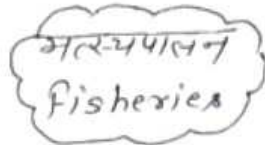 मत्स्यपालन
Fisheries